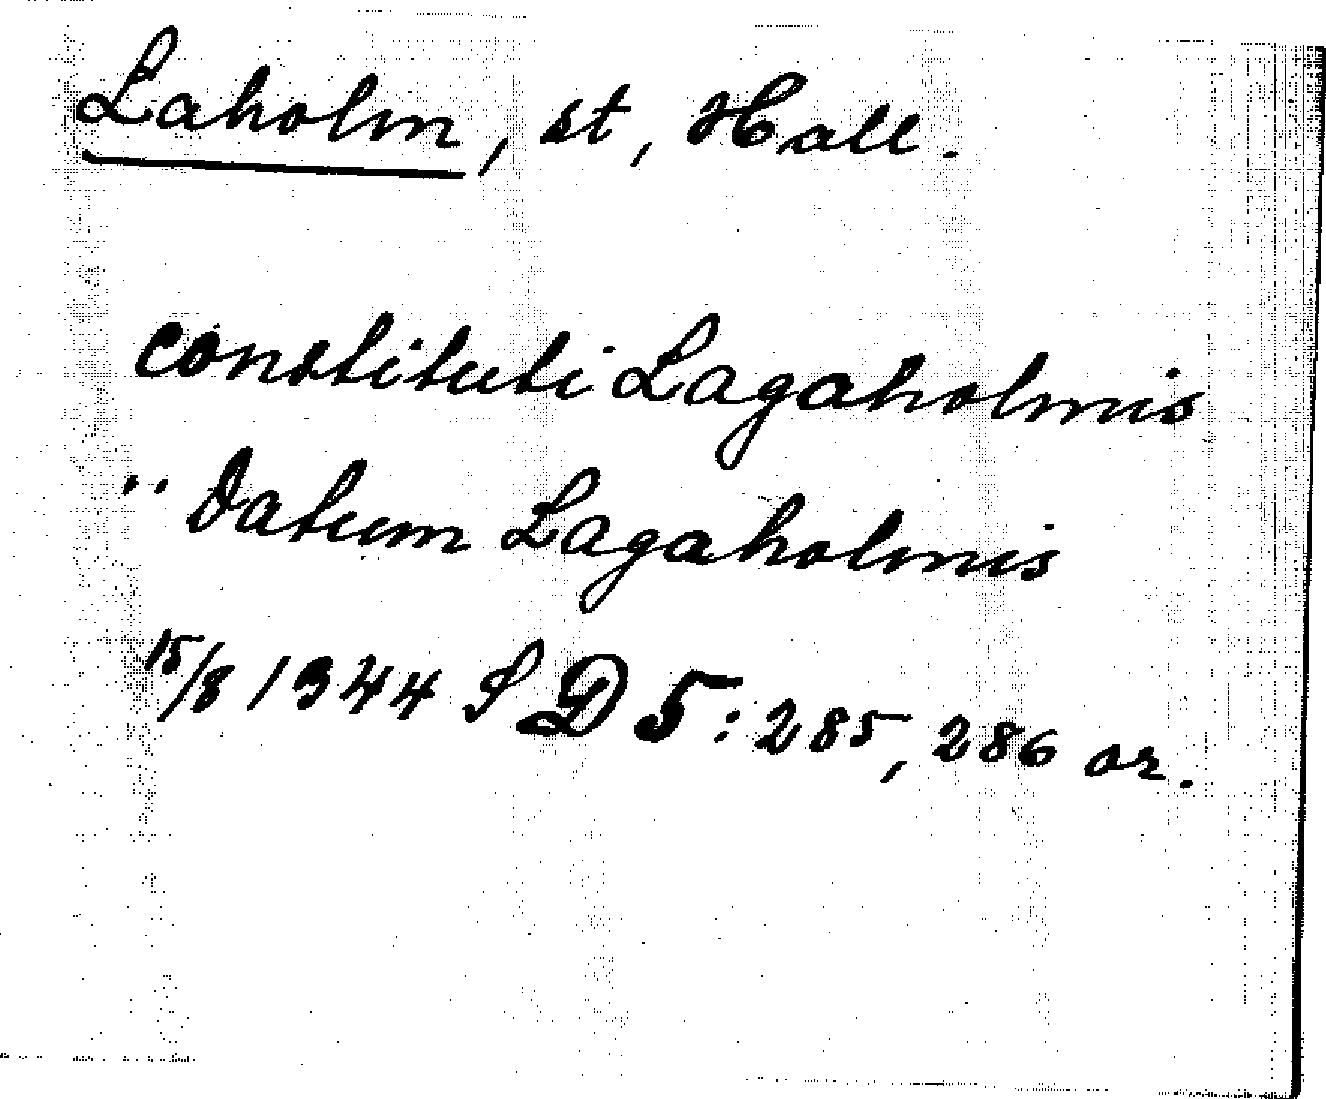 Laholm, st, Hall.
constituti Lagaholmis
.. Datum Lagaholmis
15/8 1344 SD 5: 285, 286 or.